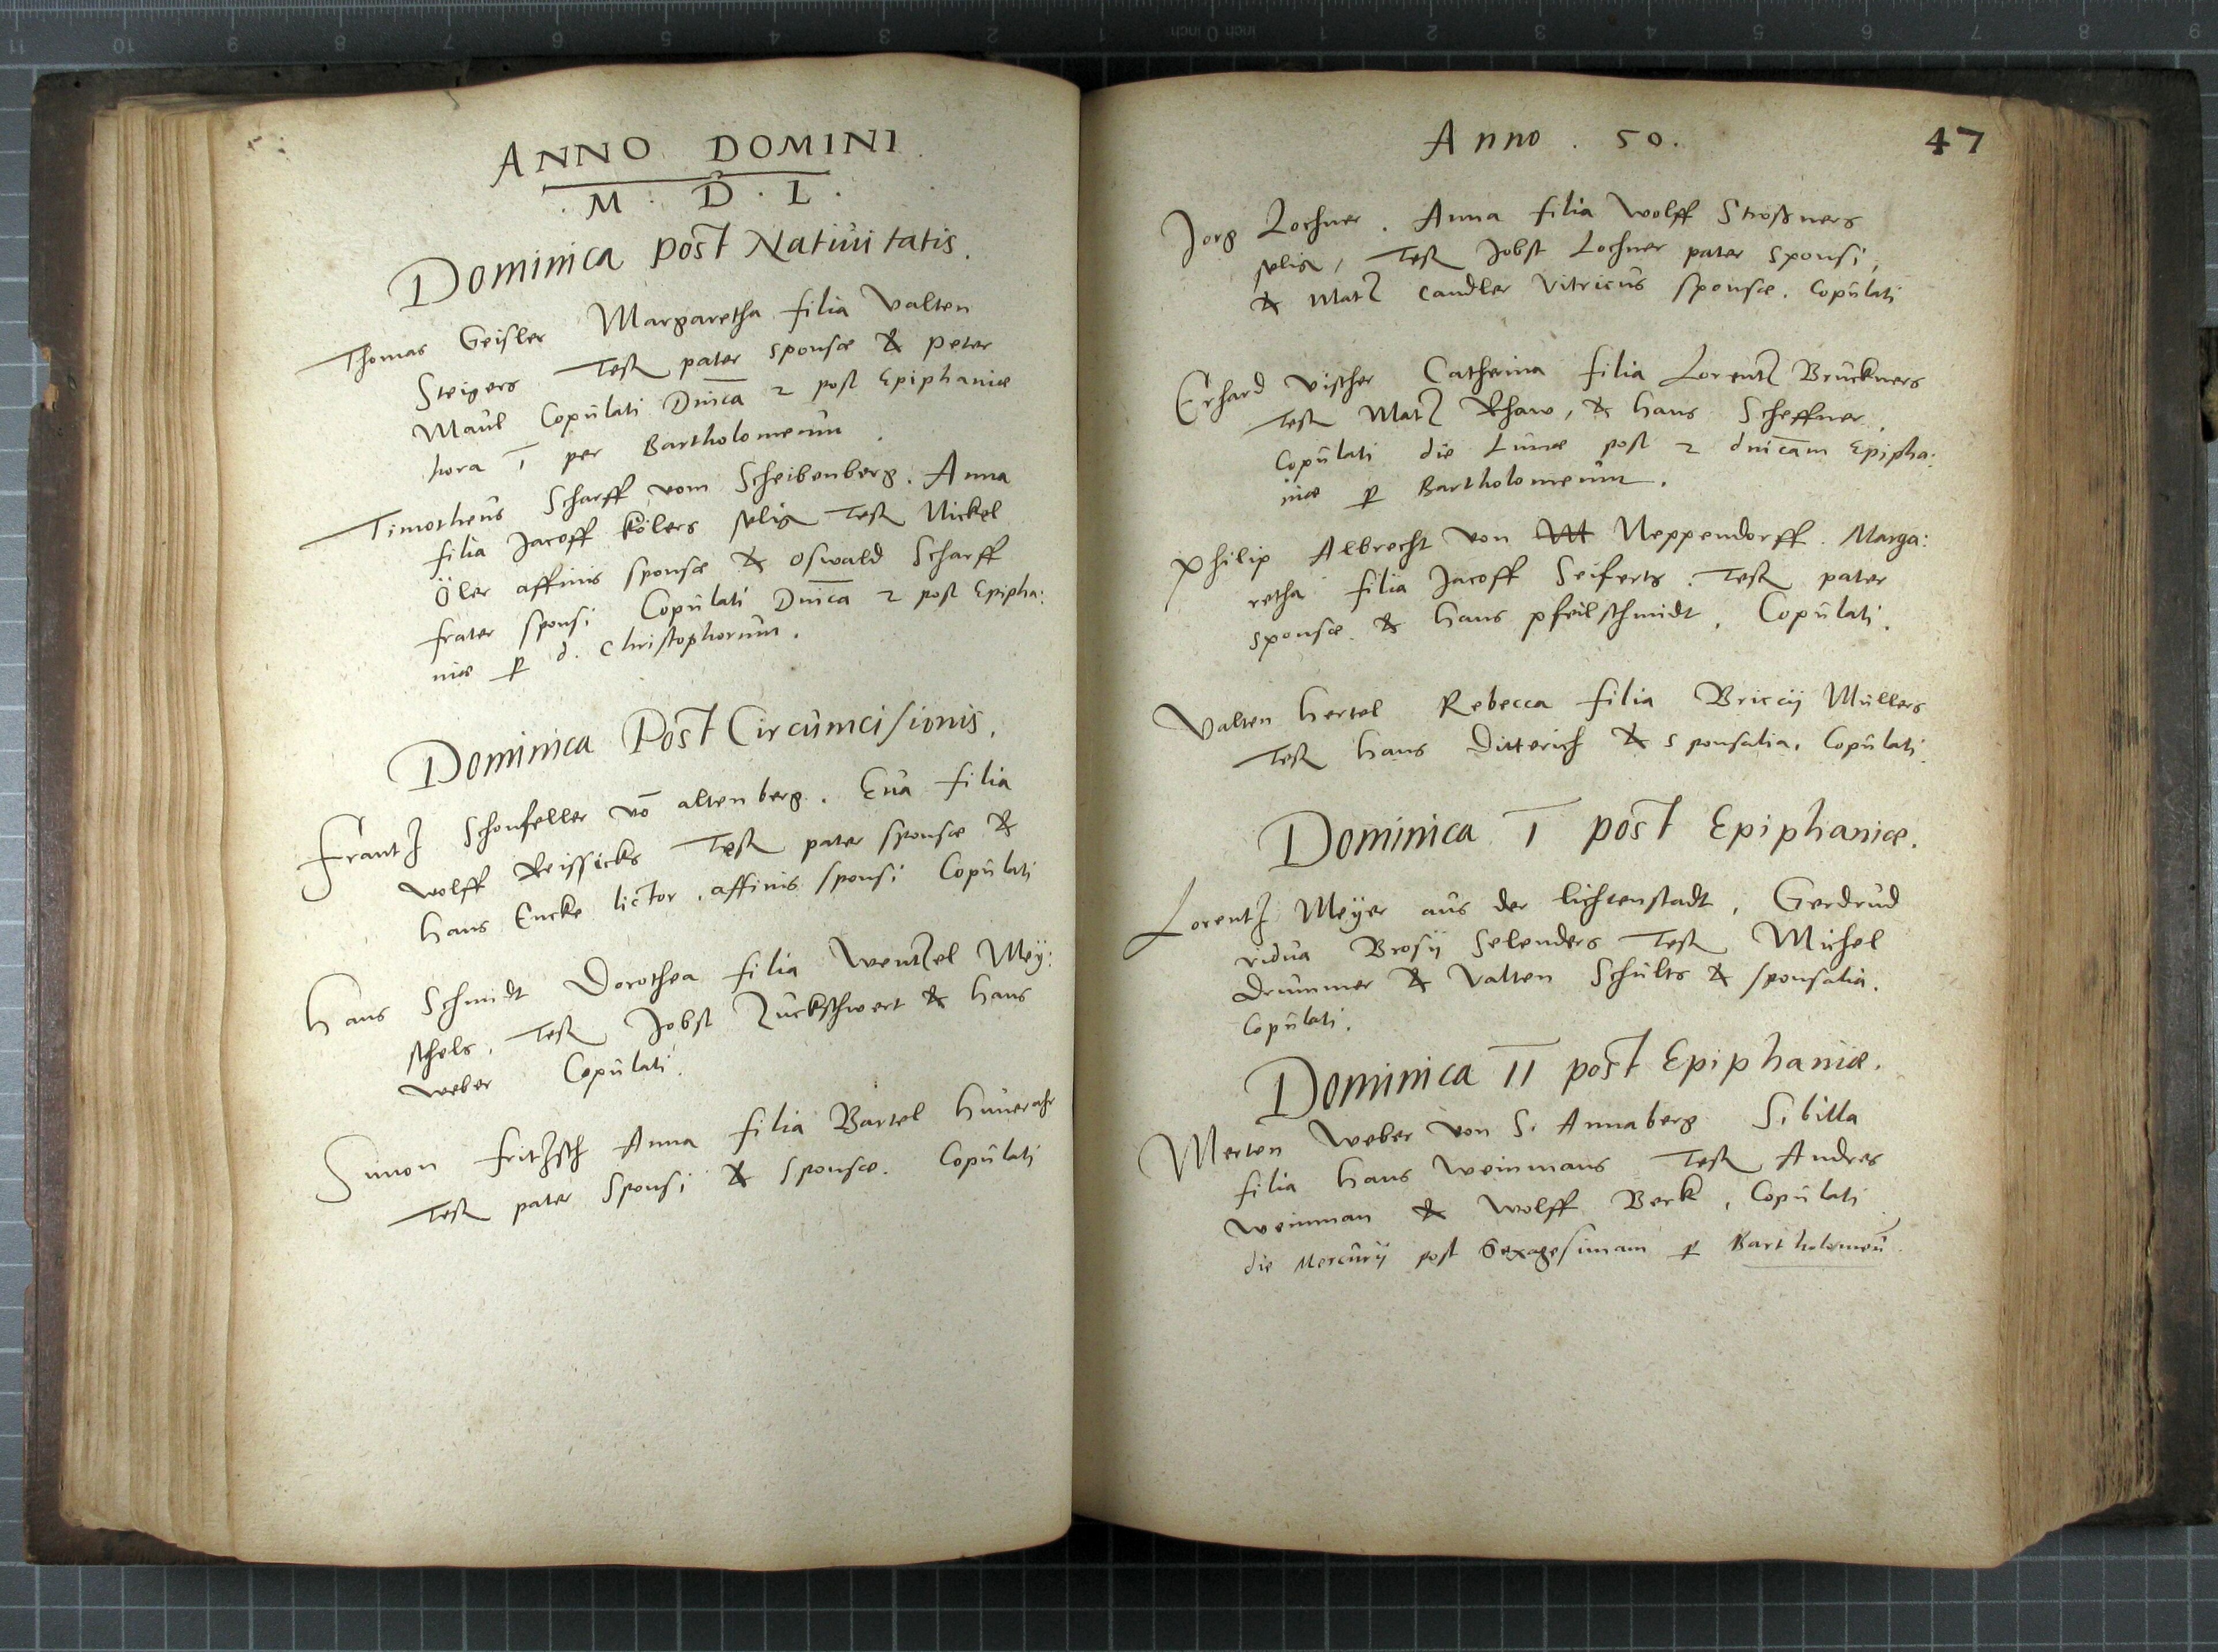 ANNO DOMINI
M. D. L.
Dominica post Natiuitatis.
Thomas Geisler Margaretha filia Valten
Steigers Test pater sponsæ & peter
Maul Copulati Dnica 2 post Epiphaniæ
hora 1 per Bartholomeum
Timotheus Scharff vom Scheibenberg. Anna
filia Jacoff Kölers selig Test Nickel
Öler affinis sponsæ & Oswald Scharff
frater sponsi Copulati Dnica 2 post Epipha:
niæ p d. Christophorum.
Dominica Post Circumcisionis.
Frantz Schonfeller vō altenberg. Eua filia
Wolff Reissicks Test pater sponsæ &
Hans Encke lictor, affinis sponsi Copulati
Hans Schmidt Dorothea filia Wentzel Mey:
schels, Test Jobst Zuckschwert & Hans
Weber Copulati.
Simon Fritzsch Anna filia Bartel
Test pater Sponsi & Sponsæ. Copulati
Anno . 50.
47
Jorg Lochner. Anna filia Wolff Stroßners
selig, Test Jobst Lochner pater sponsi,
& Matz Candler Vitricus sponsæ. Copulati
Erhard Vischer Catherina filia Lorentz Bruckners
Test Matz Rhaw, & Hans Scheffner.
Copulati die Lunæ post 2 dnicam Epipha:
niæ p Bartholomeum.
Philip Albrecht von Neppendorff. Marga:
retha filia Jacoff Seiferts. Test pater
sponsæ & Hans pfeilschmidt. Copulati.
Valten Hertel Rebecca filia Briccij Müllers
Test Hans Ditterich & sponsalia. Copulati.
Dominica I post Epiphaniæ.
Lorentz Meÿer aus der lichtenstadt, Gerdrud
vidua Brosij Selenders Test Michel
Drummer & Valten Schults & sponsalia.
Copulati.
Dominica II post Epiphaniæ.
Merten Weber von S. Annaberg Sibilla
filia Hans Weinmans Test Andres
Weinman & Wolff Berk, Copulati
die Mercurij post Sexagesimam p Bartholomeū.